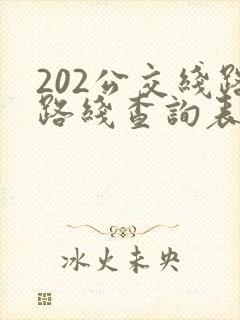 202公交綫路
路綫查詢表
冰火未央